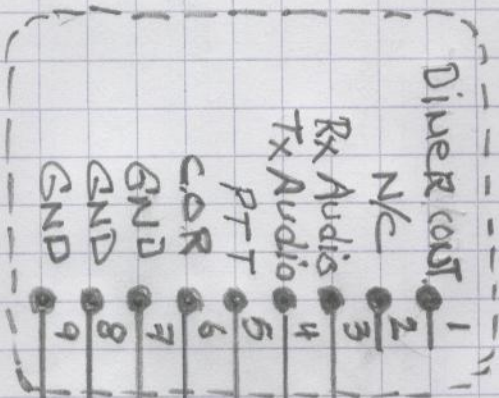 DimeR conT. 1
N/C 2
Rx Audio 3
Tx Audio 4
PTT 5
COR 6
GND 7
GND 8
GND 9